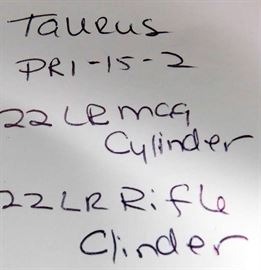 Taurus
PR1-15-2
22 LR mag
Cylinder
22 LR Rifle
Clinder